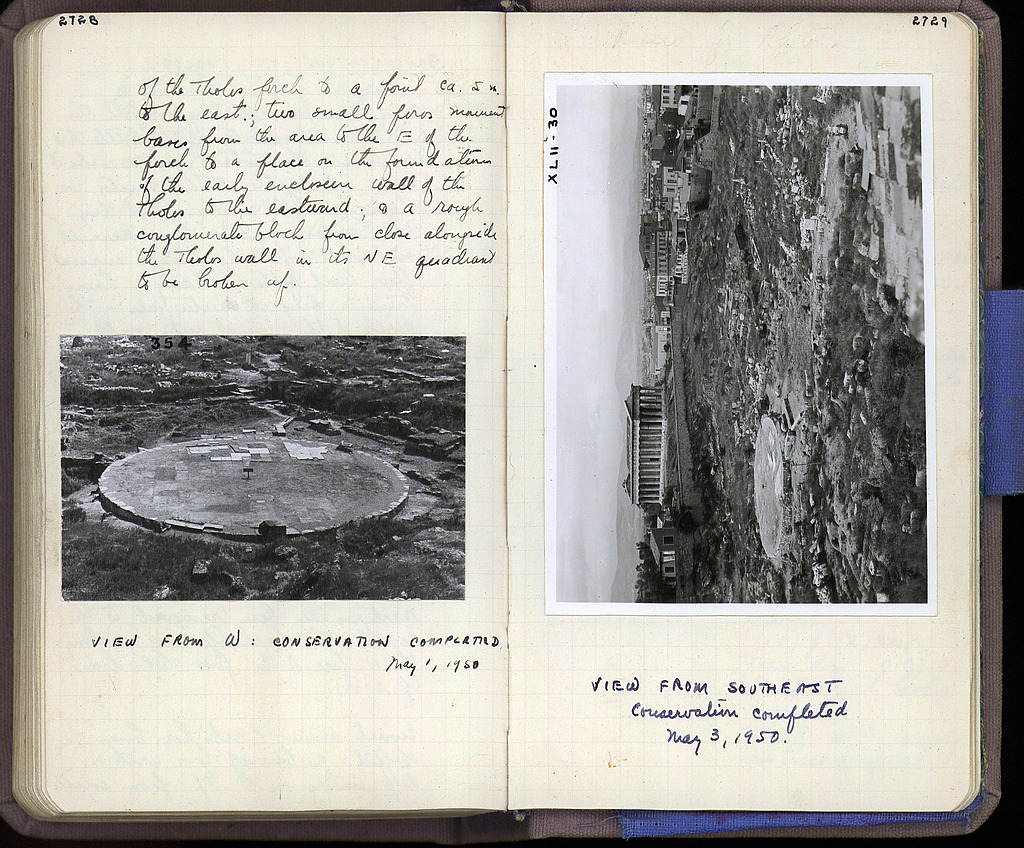 2728
of the Tholos porch to a point ca. 5 m.
to the east.; two small poros monument
bases from the area to the E of the
porch to a place on the foundation
of the early enclosure wall of the
Tholos to the eastward; & a rough
conglomerate block from close alongside
the Tholos wall in its NE quadrant
to be broken up.
354
VIEW FROM W: CONSERVATION COMPLETED
May 1, 1950
2729
XLII-30
VIEW FROM SOUTHEAST
Conservation completed
May 3, 1950.